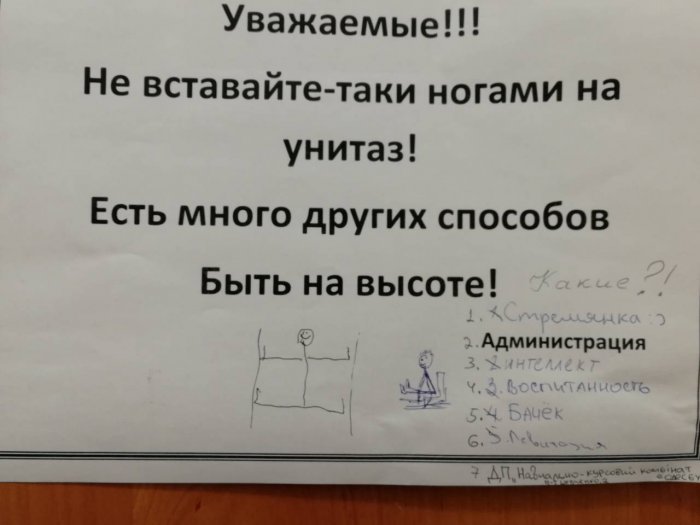 Уважаемые!!!
Не вставайте-таки ногами на
унитаз!
Есть много других способов
Быть на высоте!
Какие?!
1. Стремянка :)
2. Администрация
3. 2. интеллект
4. 3. Воспитанность
5. 4. Бачёк
6. 5. Левитация
7 ДП „Навчально-курсовий комбінат